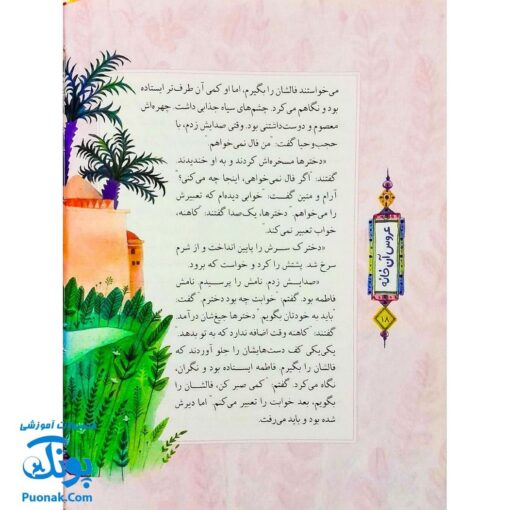 می‌خواستند فالشان را بگیرم، اما او کمی آن طرف‌تر ایستاده
بود و نگاهم می‌کرد. چشم‌های سیاه جذابی داشت. چهره‌اش
معصوم و دوست‌داشتنی بود. وقتی صدایش زدم، با
حجب‌وحیا گفت: "من فال نمی‌خواهم."
«دخترها مسخره‌اش کردند و به او خندیدند.
گفتند: "اگر فال نمی‌خواهی، اینجا چه می‌کنی؟"
آرام و متین گفت: "خوابی دیده‌ام که تعبیرش
را می‌خواهم." دخترها، یک‌صدا گفتند: "کاهنه،
خواب تعبیر نمی‌کند."
«دخترک سرش را پایین انداخت و از شرم
سرخ شد. پشتش را کرد و خواست که برود.
«صدایش زدم. نامش را پرسیدم. نامش
فاطمه بود. گفتم: "خوابت چه بود دخترم." گفت:
"باید به خودتان بگویم." دخترها جیغ‌شان درآمد.
گفتند: "کاهنه وقت اضافه ندارد که به تو بدهد."
یکی‌یکی کف دست‌هایشان را جلو آوردند که
فالشان را بگیرم. فاطمه ایستاده بود و نگران،
نگاه می‌کرد. گفتم: "کمی صبر کن، فالشان را
بگویم، بعد خوابت را تعبیر می‌کنم." اما دیرش
شده بود و باید می‌رفت.
عروس آن خانه
۱۸
آموزشی
پونک
Puonak.Com